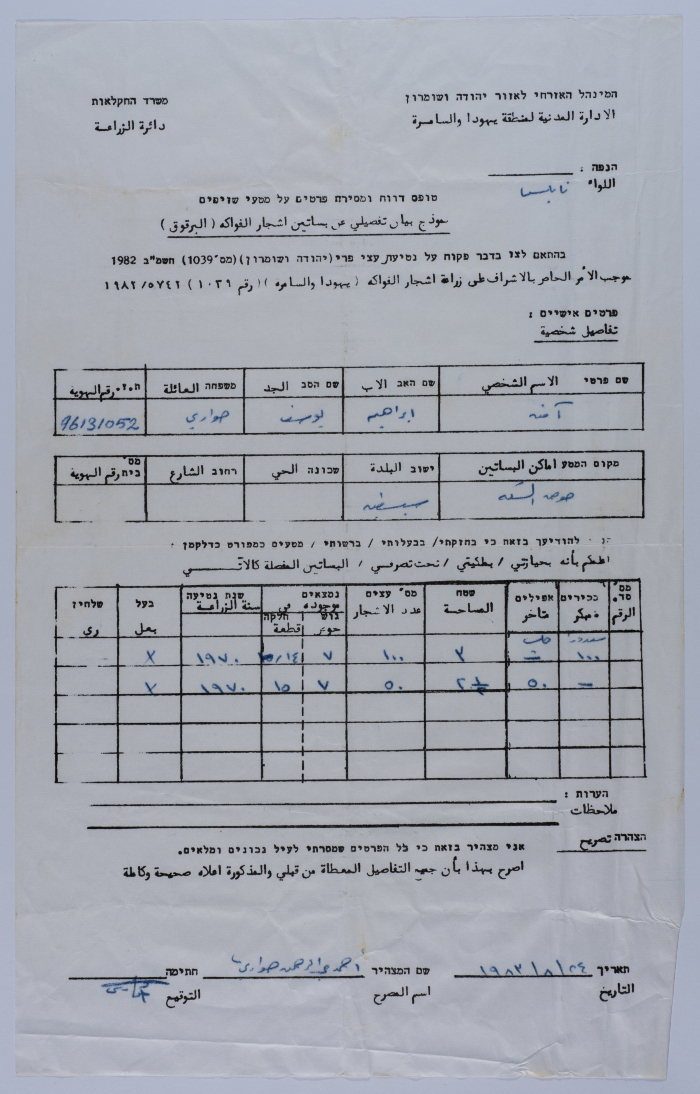 המינהל האזרחי לאזור יהודה ושומרון
משרד החקלאות
الادارة المدنية لمنطقة يهودا والسامرة
دائرة الزراعة
הנפה :
اللواء نابلس
טופס דווח ומסירת פרטים על מטעי שזיפים
نموذج بيان تفصيلي عن بساتين اشجار الفواكه ( البرقوق )
בהתאם לצו בדבר פקוח על נטיעת עצי פרי (יהודה ושומרון) (מס' 1039) תשמ"ב 1982
بموجب الأمر الخاص بالاشراف على زراعة اشجار الفواكه ( يهودا والسامرة )( رقم ١٠٣٩ ) ١٩٨٢/٥٧٤٢
פרטים אישיים :
تفاصيل شخصية
שם פרטי الاسم الشخصي שם האב الاب שם הסב الجد משפחה العائلة ת.ז. رقم الهوية
آمنه ابراهيم يوسف هواري 96131052
מקום המטע اماكن البساتين ישוב البلدة שכונה الحي רחוב الشارع מס' בית رقم الهوية
سبسطيه
להודיעך בזאת כי בחזקתי/ בבעלותי / ברשותי / מטעים כמפורט כדלקמן :
اعلمكم بأنه بحيازتي / بملكيتي / تحت تصرفي / البساتين المفصلة كالاتـــي
מס' סד. الرقم בכירים مبكر אפילים متاخر שטח المساحة מס' עצים عدد الاشجار נמצאים موجوده في גוש حوض חלקה قطعة שנת נטיעה سنة الزراعة בעל بعل שלחין ري
١٠٠ – ٣ ١٠٠ ٧ ١٥/١٤ ١٩٧٠ X
– ٥٠ ٢ ١/٢ ٥٠ ٧ ١٥ ١٩٧٠ X
הערות :
ملاحظات
הצהרה تصريح
אני מצהיר בזאת כי כל הפרטים שמסרתי לעיל נכונים ומלאים.
اصرح بهذا بأن جميع التفاصيل المعطاة من قبلي والمذكورة اعلاه صحيحة وكاملة
תאריך ١٩٨٣/٨/٢٤ שם המצהיר احمد عبد الرحمن هواري חתימה
التاريخ اسم المصرح التوقيع